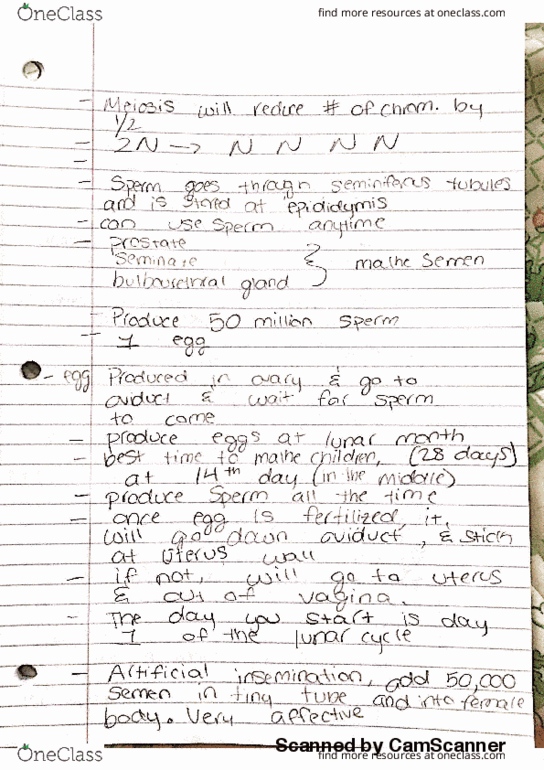 OneClass
find more resources at oneclass.com
- Meiosis will reduce # of chrom. by
1/2
- 2N -> N N N N
-
- Sperm goes through seminiferus tubules
and is stored at epididymis
- can use sperm anytime
- prostate
seminate } mathe semen
bulbourethral gland
Produce 50 million sperm
- 1 egg
- egg Produced in ovary & go to
oviduct & wait for sperm
to come
- produce eggs at lunar month
- best time to mathe children, (28 days)
at 14th day (in the middle)
- produce sperm all the time
- once egg is fertilized, it,
will go down oviduct, & stick
at uterus wall
- if not, will go to uterus
& out of vagina.
- The day you start is day
1 of the lunar cycle
- Artificial insemination, add 50,000
semen in tiny tube and into female
body. Very affective
Scanned by CamScanner
OneClass
find more resources at oneclass.com